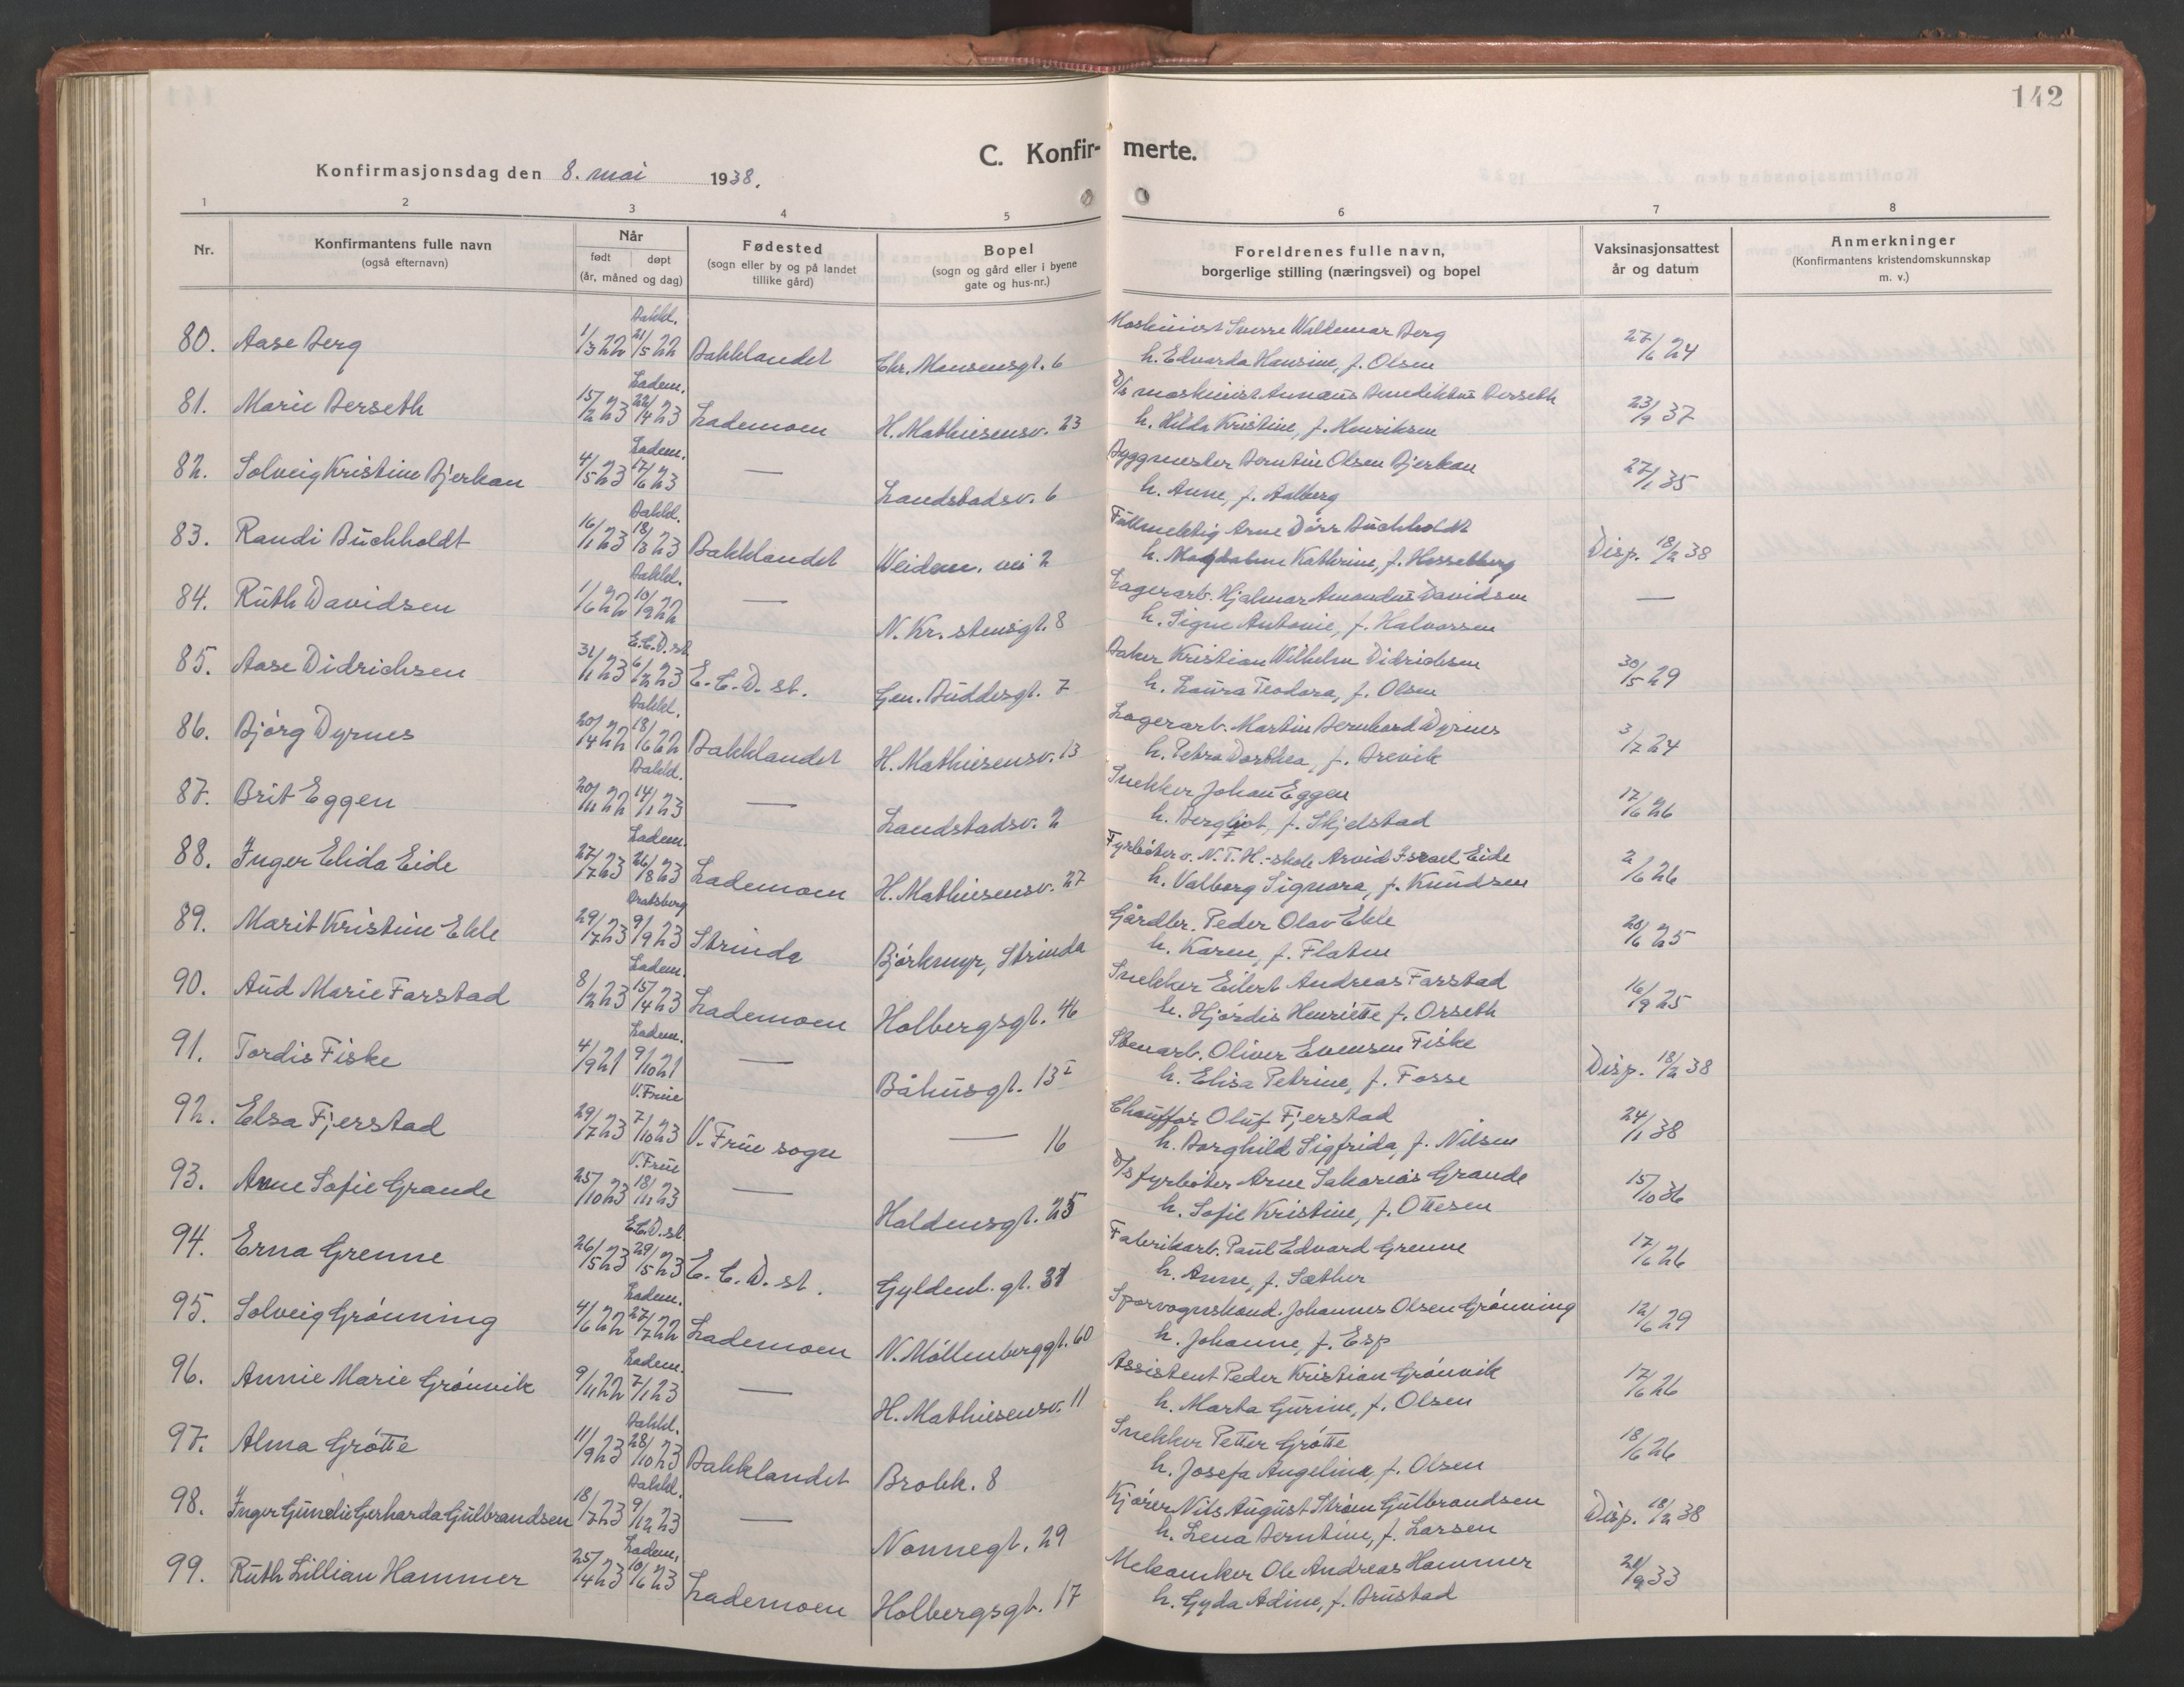 142
C. Konfir- merte.
Konfirmasjonsdag den 8. mai 1938.
1 2 3 4 5 6 7 8
Nr.
Konfirmantens fulle navn
(også efternavn)
Når
født døpt
(år, måned og dag)
Fødested
(sogn eller by og på landet
tillike gård)
Bopel
(sogn og gård eller i byene
gate og hus-nr.)
Foreldrenes fulle navn,
borgerlige stilling (næringsvei) og bopel
Vaksinasjonsattest
år og datum
Anmerkninger
(Konfirmantens kristendomskunnskap
m. v.)
80. Aase Berg 1/3 22 Bakkl. 21/5 22 Bakklandet Chr. Monsensgt. 6 Maskinist Sverre Waldemar Berg
h. Edvarda Hansine, f. Olsen 27/6 24
81. Marie Berseth 15/2 23 Ladem. 22/4 23 Lademoen H. Mathiesensv. 23 D/s maskinist Annæus Benediktus Berseth
h. Hilda Kristine, f. Henriksen 23/9 37
82. Solveig Kristine Bjerkan 4/5 23 Ladem. 17/6 23 — Landstadsv. 6 Byggmester Berntin Olsen Bjerkan
h. Anne, f. Aalberg 27/1 35
83. Randi Buchholdt 16/1 23 Bakkl. 18/3 23 Bakklandet Weidem. vei 2 Fullmektig Arne Dörr Buchholdt
h. Magdalene Kathrine, f. Hasselberg Disp. 18/2 38
84. Ruth Davidsen 1/6 22 Bakkl. 10/9 22 — N. Kr. stensgt. 8 Lagerarb. Hjalmar Amandus Davidsen
h. Signe Antonie, f. Halvorsen —
85. Aase Didrichsen 31/1 23 E.C.D. st. 6/2 23 E. C. D. st. Gen. Buddesgt. 7 Baker Kristian Wilhelm Didrichsen
h. Laura Teodora, f. Olsen 30/5 29
86. Bjørg Dyrnes 20/4 22 Bakkl. 18/6 22 Bakklandet H. Mathiesensv. 13 Lagerarb. Martin Bernhard Dyrnes
h. Petra Dorthea, f. Brevik 3/7 24
87. Brit Eggen 20/11 22 Bakkl. 14/1 23 — Landstadsv. 2 Snekker Johan Eggen
h. Bergliot, f. Skjelstad 17/6 26
88. Inger Elida Eide 27/7 23 Ladem. 26/8 23 Lademoen H. Mathiesensv. 27 Fyrbøter v. N.T.H.-skole Arvid Israel Eide
h. Valborg Signora, f. Knudsen 2/6 26
89. Marit Kristine Ekle 29/7 23 Bratsberg 9/9 23 Strinda Bjørkmyr, Strinda Gårdbr. Peder Olav Ekle
h. Karen, f. Flaten 20/6 25
90. Aud Marie Farstad 8/2 23 Ladem. 15/4 23 Lademoen Holbergsgt. 46 Snekker Eilert Andreas Farstad
h. Hjørdis Henriette f. Orseth 16/9 25
91. Tordis Fiske 4/9 21 Ladem. 9/10 21 — Båhusgt. 13 I Stenarb. Oliver Evensen Fiske
h. Elisa Petrine, f. Fosse Disp. 18/2 38
92. Elsa Fjerstad 29/7 23 V. Frue 7/10 23 V. Frue sogn — 16 Chauffør Oluf Fjerstad
h. Borghild Sigfrida, f. Nilsen 24/1 38
93. Anne Sofie Grande 25/10 23 V. Frue 18/11 23 — Haldensgt. 25 D/s fyrbøter Arne Sakarias Grande
h. Sofie Kristine, f. Ottesen 15/10 36
94. Erna Grenne 26/5 23 E.C.D. st. 29/5 23 E. C. D. st. Gyldenl. gt. 31 Fabrikarb. Paul Edvard Grenne
h. Anne, f. Sæther 17/6 26
95. Solveig Grønning 4/6 22 Ladem. 27/7 22 Lademoen N. Møllenberggt. 60 Sporvognskond. Johannes Olsen Grønning
h. Johanne, f. Esp 12/6 29
96. Annie Marie Grønvik 9/11 22 Ladem. 7/1 23 — H. Mathiesensv. 11 Assistent Peder Kristian Grønvik
h. Marta Gurine, f. Olsen 17/6 26
97. Alma Grøtte 11/9 23 Bakkl. 28/10 23 Bakklandet Brobk. 8 Snekker Petter Grøtte
h. Josefa Angelina, f. Olsen 18/6 26
98. Inger Gunelie Gerharda Gulbrandsen 18/7 23 Bakkl. 9/12 23 — Nonnegt. 29 Kjører Nils August Strøm Gulbrandsen
h. Lena Berntine, f. Larsen Disp. 18/2 38
99. Ruth Lillian Hammer 25/4 23 Ladem. 10/6 23 Lademoen Holbergsgt. 17 Mekaniker Ole Andreas Hammer
h. Gyda Adine, f. Brustad 21/9 33